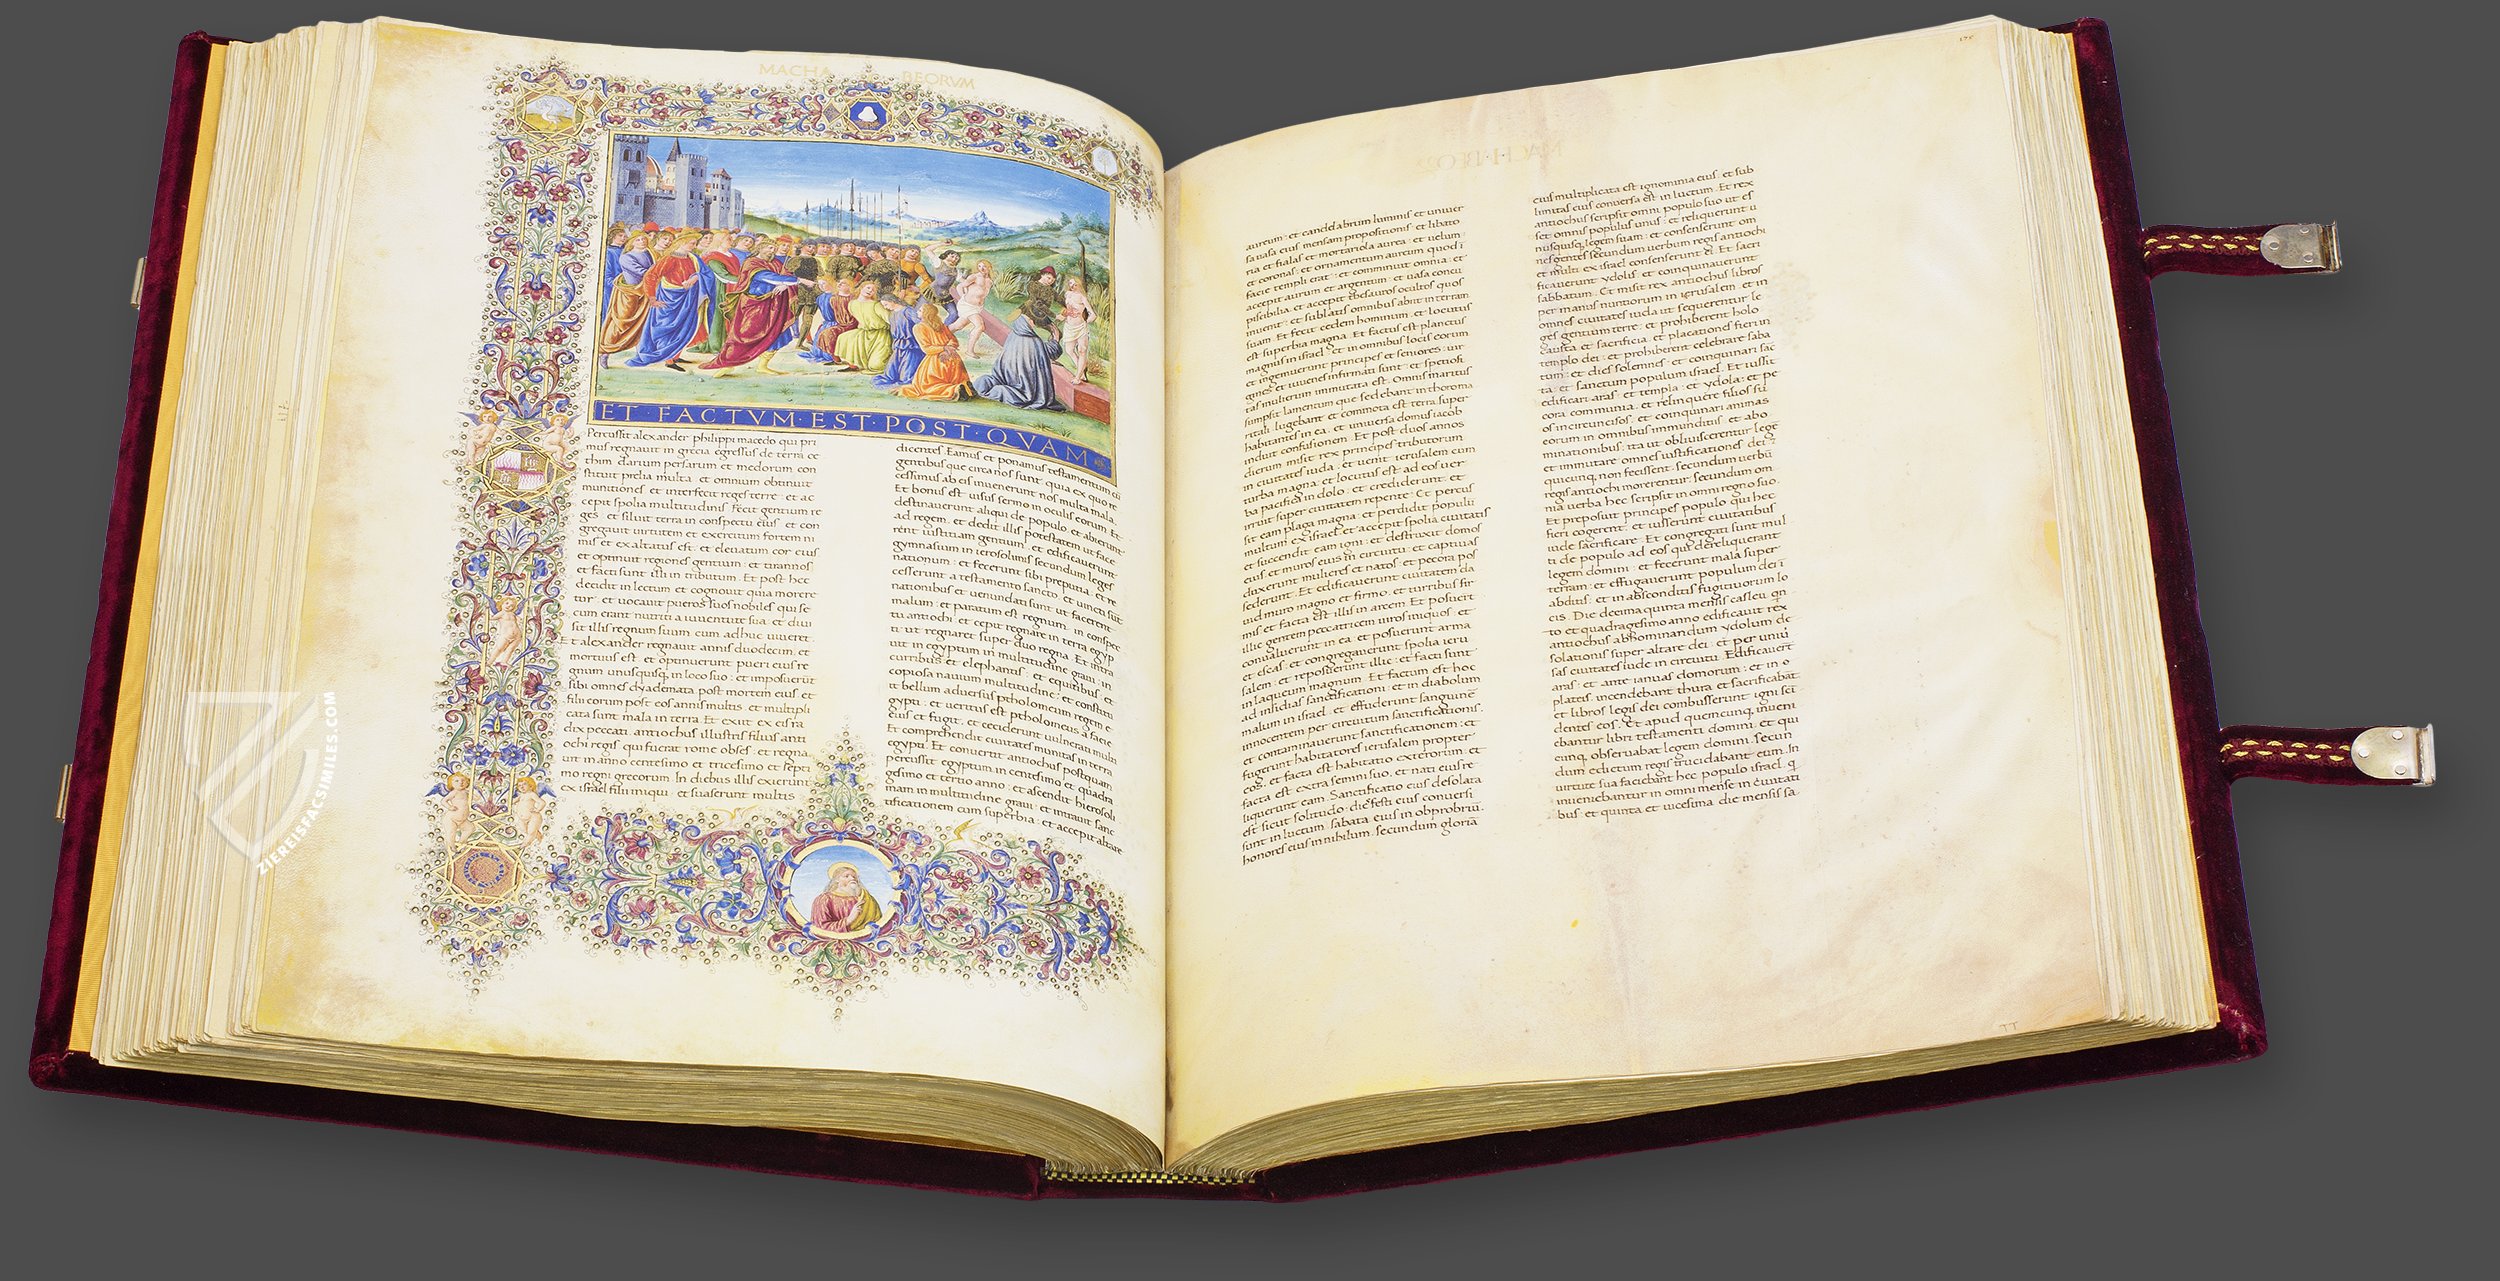 MACHA BEORVM
ET·FACTVM·EST·POST·QVAM·
Percussit alexander philippi macedo qui pri
mus regnauit in grecia egressus de terra ce
thim darium persarum et medorum con
stituit prelia multa et omnium obtinuit
munitiones et interfecit reges terre et ac
cepit spolia multitudinis Fecit gentium re
ges et siluit terra in conspectu eius et con
gregauit uirtutem et exercitum fortem ni
mis et exaltatus est et eleuatum cor eius
et optinuit regiones gentium et tirannos
et facti sunt illi in tributum. Et post hec
decidit in lectum et cognouit quia morere
tur et uocauit pueros suos nobiles qui se
cum erant nutriti a iuuentute sua et diui
sit illis regnum suum cum adhuc uiueret.
Et alexander regnauit annis duodecim et
mortuus est et optinuerunt pueri eius re
gnum unusquisq in loco suo et imposuerūt
sibi omnes dyademata post mortem eius et
filii eorum post eos annis multis et multipli
cata sunt mala in terra. Et exiit ex eis ra
dix peccati antiochus illustris filius anti
ochi regis qui fuerat rome obses et regna
uit in anno centesimo et tricesimo et septi
mo regni grecorum In diebus illis exierunt
ex israel filii iniqui et suaserunt multis
dicentes. Eamus et ponamus testamentum cū
gentibus que circa nos sunt quia ex quo re
cessimus ab eis inuenerunt nos multa mala.
Et bonus est uisus sermo in oculis eorum. Et
destinauerunt aliqui de populo et abierunt
ad regem et dedit illis potestatem ut face
rent iustitiam gentium et edificauerunt
gymnasium in ierosolimis secundum leges
nationum et fecerunt sibi preputia et re
cesserunt a testamento sancto et iuncti sūt
nationibus et uenundati sunt ut facerent
malum et paratum est regnum in conspec
tu antiochi et cepit regnare in terra egyp
ti ut regnaret super duo regna. Et intra
uit in egyptum in multitudine graui in
curribus et elephantis et equitibus et
copiosa nauium multitudine et constitu
it bellum aduersus ptholomeum regem e
gypti et ueritus est ptholomeus a facie
eius et fugit et ceciderunt uulnerati multi
Et comprehendit ciuitates munitas in terra
egypti. Et conuertit antiochus postquam
percussit egyptum in centesimo et quadra
gesimo et tertio anno et ascendit hierosoli
mam in multitudine graui et intrauit sanc
tificationem cum superbia et accepit altare
aureum et candelabrum luminis et uniuer
sa uasa eius et mensam propositionis et libato
ria et fialas et mortariola aurea et uelum
et coronas et ornamentum aureum quod ī
facie templi erat et comminuit omnia et
accepit aurum et argentum et uasa concu
piscibilia et accepit thesauros ocultos quos
inuenit et sublatis omnibus abiit in terram
suam Et fecit cedem hominum et locutus
est superbia magna. Et factus est planctus
magnus in israel et in omnibus locis eorum
et ingemuerunt principes et seniores uir
gines et iuuenes infirmati sunt et spetiosi
tas mulierum immutata est. Omnis maritus
sumpsit lamentum que sedebant in thoroma
ritali lugebant et commota est terra super
habitantes in ea et uniuersa domus iacob
induit confusionem. Et post duos annos
dierum misit rex principes tributorum
in ciuitates iuda et uenit ierusalem cum
turba magna et locutus est ad eos uer
ba pacifica in dolo et crediderunt ei
irruit super ciuitatem repente Et percus
sit eam plaga magna et perdidit populū
multum ex israel et accepit spolia ciuitatis
et succendit eam igni et destruxit domos
eius et muros eius in circuitu et captiuas
duxerunt mulieres et natos et pecora pos
sederunt. Et edificauerunt ciuitatem da
uid muro magno et firmo et turribus fir
mis et facta est illis in arcem Et posuerūt
illic gentem peccatricem uiros iniquos et
conualuerunt in ea et posuerunt arma
et escas et congregauerunt spolia ieru
salem et reposuerunt illic et facti sunt
in laqueum magnum Et factum est hoc
ad insidias sanctificationi et in diabolum
malum in israel et effuderunt sanguinē
innocentem per circuitum sanctificationis
et contaminauerunt sanctificationem et
fugerunt habitatores ierusalem propter
eos et facta est habitatio exterorum et
facta est extra semini suo et nati eius re
liquerunt eam. Sanctificatio eius desolata
est sicut solitudo dies festi eius conuersi
sunt in luctum sabata eius in obprobriū
honores eius in nihilum secundum gloriā
eius multiplicata est ignominia eius et sub
limitas eius conuersa est in luctum. Et rex
antiochus scripsit omni populo suo ut es
set omnis populus unus et reliquerunt u
nusquisq legem suam et consenserunt om
nes gentes secundum uerbum regis antiochi
et multi ex israel consenserunt ei Et sacri
ficauerunt ydolis et coinquinauerunt
sabbatum. Et misit rex antiochus libros
per manus nuntiorum in ierusalem et in
omnes ciuitates iuda ut sequerentur le
ges gentium terre et prohiberent holo
causta et sacrificia et placationes fieri in
templo dei et prohiberent celebrare saba
tum et dies solemnes et coinquinari sāc
ta et sanctum populum israel Et iussit
edificari aras et templa et ydola et pe
cora communia et relinquere filios su
os incircuncisos et coinquinari animas
eorum in omnibus immunditiis et abo
minationibus ita ut obliuiscerentur lege
et immutare omnes iustificationes dei
quicunq non fecissent secundum uerbū
regis antiochi morerentur secundum om
nia uerba hec scripsit in omni regno suo.
Et preposuit principes populo qui hec
fieri cogerent et iusserunt ciuitatibus
iude sacrificare Et congregati sunt mul
ti de populo ad eos qui dereliquerant
legem domini et fecerunt mala super
terram et effugauerunt populum dei ī
abditis et in absconditis fugitiuorum lo
cis. Die decima quinta mensis casleu qn
to et quadragesimo anno edificauit rex
antiochus abhominandum ydolum de
solationis super altare dei et per uniū
sas ciuitates iude in circuitu Edificauert
aras et ante ianuas domorum et in o
plateis incendebant thura et sacrificabāt
et libros legis dei combusserunt igni scī
dentes eos. Et apud quemcunq inueni
ebantur libri testamenti domini et qui
cunq obseruabat legem domini secun
dum edictum regis trucidabant eum. In
uirtute sua faciebant hec populo israel q
inueniebantur in omni mense in ciuitati
bus et quinta et uicesima die mensis sa
ZIEREISFACSIMILES.COM